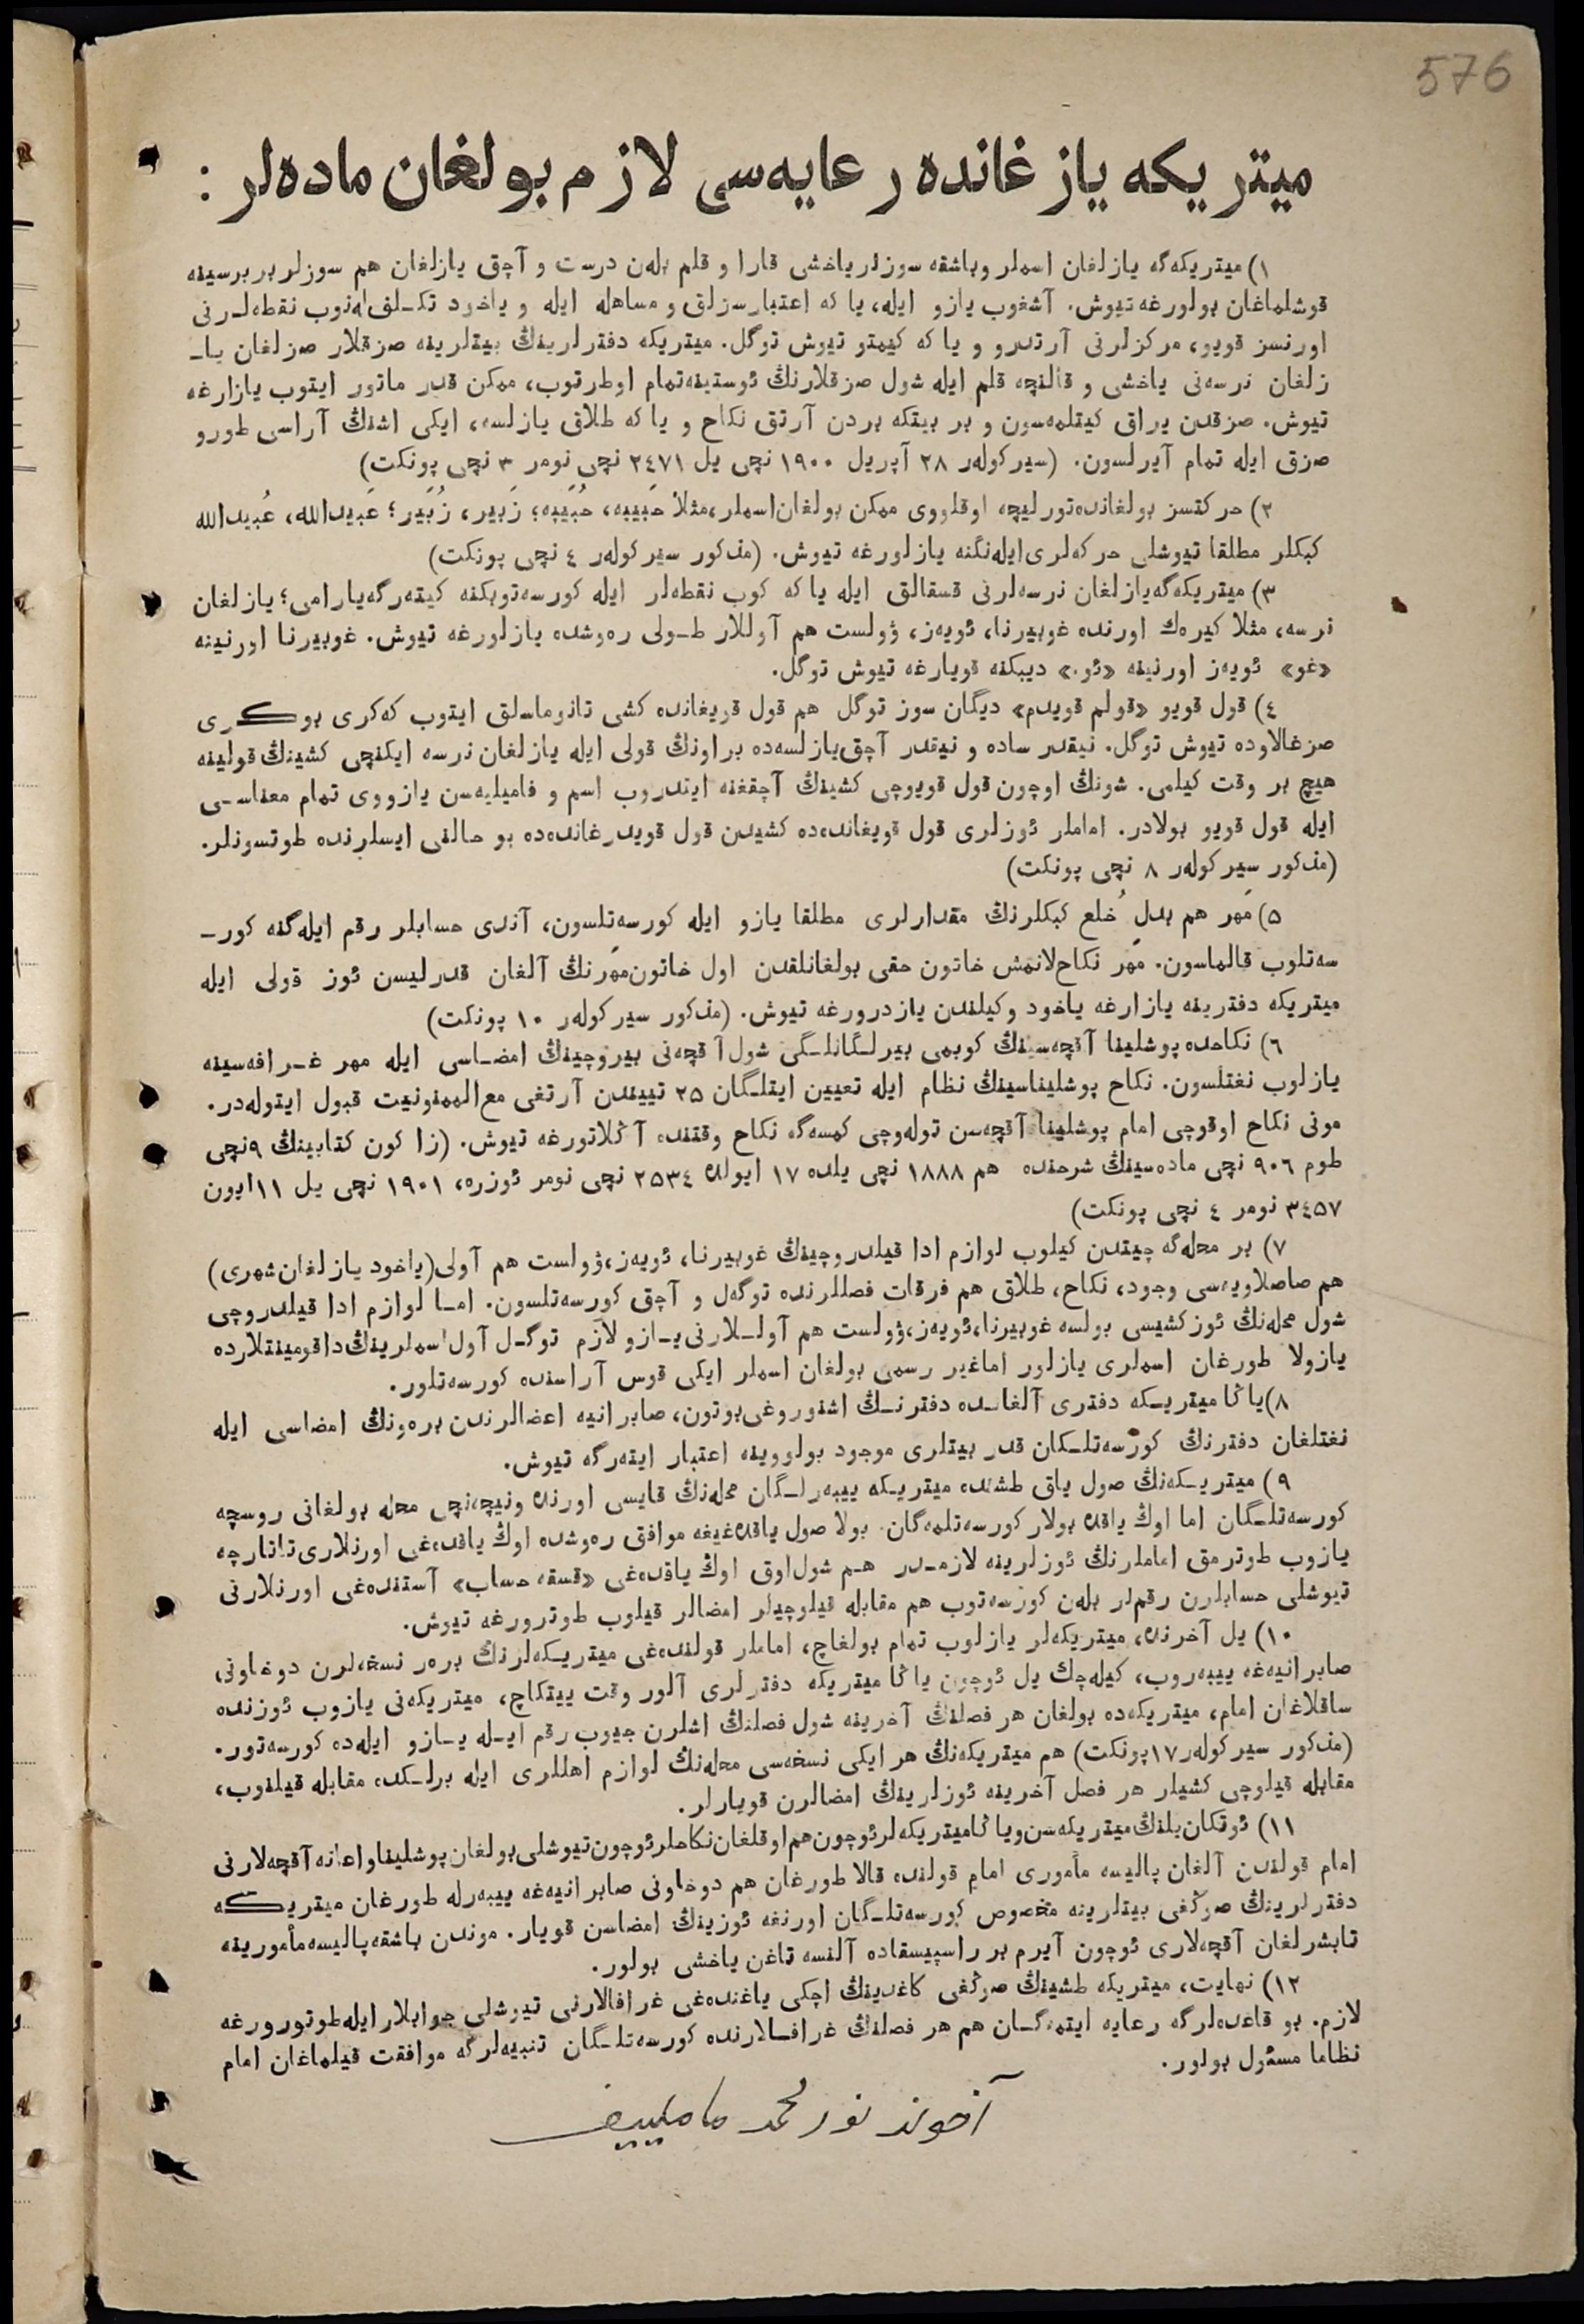 576
ميتريكه يازغانده رعايه‌سى لازم بولغان ماده‌لر :
١) ميتريكه‌گه يازلغان اسملر وباشقه سوزلر ياخشى قارا و قلم بله‌ن درست و آچق يازلغان هم سوزلر بر برسينه
قوشلماغان بولورغه تيوش. آشغوب يازو ايله، يا كه اعتبارسزلق و مساهله ايله و ياخود تكـلف له‌نوب نقطه‌لـرنى
اورنسز قويو، مركزلرنى آرتدرو و يا كه كيمتو تيوش توگل. ميتريكه دفترلرينڭ بيتلرينه صزقلار صزلغان يا‌ـ
زلغان نرسه‌نى ياخشى و قالنچه قلم ايله شول صزقلارنڭ ئوستينه تمام اوطرتوب، ممكن قدر ماتور ايتوب يازارغه
تيوش. صزقدن يراق كيتلمه‌سون و بر بيتكه بردن آرتق نكاح و يا كه طلاق يازلسه، ايكى اشنڭ آراسى طورو
صزق ايله تمام آيرلسون. (سيركولەر ٢٨ آپريل ١٩٠٠ نچى يل ٢٤٧١ نچى نومر ٣ نچى پونكت)
٢) حركتسز بولغانده تورليچه اوقلووى ممكن بولغان اسملر، مثلاً حَبيبه، حُبَيبه؛ زَبير، زُبَير؛ عَبيدالله، عُبيدالله
كبكلر مطلقا تيوشلى حركه‌لرى ايله‌نگنه يازلورغه تيوش. (مذكور سيركولەر ٤ نچى پونكت)
٣) ميتريكه‌گه يازلغان نرسه‌لرنى قسقالق ايله يا كه كوب نقطه‌لر ايله كورسه‌توبكنه كيتەرگه يارامى؛ يازلغان
نرسه، مثلا كيرەك اورنده غوبيرنا، ئويەز، ۋولست هم آوللار طـولى رەوشده يازلورغه تيوش. غوبيرنا اورنينه
«غو» ئويەز اورنينه «ئو.» ديبكنه قويارغه تيوش توگل.
٤) قول قويو «قولم قويدم» ديگان سوز توگل هم قول قويغانده كشى تانوماسلق ايتوب كه‌كرى بوكـرى
صزغالاوده تيوش توگل. نيقدر ساده و نيقدر آچق يازلسه‌ده براونڭ قولى ايله يازلغان نرسه ايكنچى كشينڭ قولينه
هيچ بر وقت كيلمى. شونڭ اوچون قول قويوچى كشينڭ آچقغنه ايتدروب اسم و فاميليه‌سن يازووى تمام معناسـى
ايله قول قويو بولادر. اماملر ئوزلرى قول قويغانده‌ده كشيدن قول قويدرغانده‌ده بو حالنى ايسلرنده طوتسونلر.
(مذكور سيركولەر ٨ نچى پونكت)
٥) مَهر هم بدلِ خُلع كبكلرنڭ مقدارلرى مطلقا يازو ايله كورسه‌تلسون، آندى حسابلر رقم ايله‌گنه كورـ
سه‌تلوب قالماسون. مَهر نكاح‌لانمش خاتون حقى بولغانلقدن اول خاتون مَهرنڭ آلغان قدرليسن ئوز قولى ايله
ميتريكه دفترينه يازارغه ياخود وكيلندن يازدرورغه تيوش. (مذكور سيركولەر ١٠ پونكت)
٦) نكاحده پوشلينا آقچه‌سينڭ كوبمى بيرلـگانلـگى شول آقچه‌نى بيروچينڭ امضـاسى ايله مهر غـرافه‌سينه
يازلوب نغتلسون. نكاح پوشليناسينڭ نظام ايله تعيين ايتلـگان ٢٥ تييندن آرتغى مع‌الممنونيت قبول ايتوله‌در.
مونى نكاح اوقوچى امام پوشلينا آقچه‌سن توله‌وچى كمسه‌گه نكاح وقتنده آڭلاتورغه تيوش. (زا كون كتابينڭ ٩نچى
طوم ٩٠٦ نچى ماده‌سينڭ شرحنده هم ١٨٨٨ نچى يلده ١٧ ايولده ٢٥٣٤ نچى نومر ئوزره، ١٩٠١ نچى يل ١١ ايون
٣٤٥٧ نومر ٤ نچى پونكت)
٧) بر محله‌گه چيتدن كيلوب لوازم ادا قيلدروچينڭ غوبيرنا، ئويەز، ۋولست هم آولى (ياخود يازلغان شهرى)
هم صاصلاويه‌سى وجود، نكاح، طلاق هم فرقات فصللرنده توگه‌ل و آچق كورسه‌تلسون. امـا لوازم ادا قيلدروچى
شول محله‌نڭ ئوز كشيسى بولسه غوبيرنا، ئويەز، ۋولست هم آولـلارنى يـازو لازم توگـل آول اسملرينڭ داقومينتلارده
يازولا طورغان اسملرى يازلور اما غير رسمى بولغان اسملر ايكى قوس آراسنده كورسه‌تلور.
٨) ياڭا ميتريـكه دفترى آلغانـده دفترنـڭ اشنوروغى بوتون، صابرانيه اعضالرندن بره‌ونڭ امضاسى ايله
نغتلغان دفترنڭ كورسه‌تلـگان قدر بيتلرى موجود بولووينه اعتبار ايتەرگه تيوش.
٩) ميتريـكه‌نڭ صول ياق طشنده ميتريـكه ييبه‌رلـگان محله‌نڭ قايسى اورنده ونيچه‌نچى محله بولغانى روسچه
كورسه‌تلـگان اما اوڭ ياقده بولار كورسه‌تلمه‌گان. بولا صول ياقده‌غيغه موافق ره‌وشده اوڭ ياقده‌غى اورنلارى تاتارچه
يازوب طوترمق اماملرنڭ ئوزلرينه لازمـدر هـم شول‌اوق اوڭ ياقده‌غى «قسقه حساب» آستنده‌غى اورنلارنى
تيوشلى حسابلرن رقم‌لر بله‌ن كورسه‌توب هم مقابله قيلوچيلر امضالر قيلوب طوترورغه تيوش.
١٠) يل آخرنده، ميتريكه‌لر يازلوب تمام بولغاچ، اماملر قولنده‌غى ميتريـكه‌لرنڭ بره‌ر نسخه‌لرن دوخاونى
صابرانيه‌غه ييبه‌روب، كيله‌چك يل ئوچون ياڭا ميتريكه دفترلرى آلور وقت ييتكاچ، ميتريكه‌نى يازوب ئوزنده
ساقلاغان امام، ميتريكه‌ده بولغان هر فصلنڭ آخرينه شول فصلنڭ اشلرن جيوب رقم ايـله يـازو ايله‌ده كورسه‌تور.
(مذكور سيركولەر ١٧ پونكت) هم ميتريكه‌نڭ هر ايكى نسخه‌سى محله‌نڭ لوازم اهللرى ايله برلـكده مقابله قيلنوب،
مقابله قيلوچى كشيلر هر فصل آخرينه ئوزلرينڭ امضالرن قويارلر.
١١) ئوتكان يلنڭ ميتريكه‌سن و ياڭا ميتريكه‌لر ئوچون هم اوقلغان نكاحلر ئوچون تيوشلى بولغان پوشلينا و اعانه آقچه‌لارنى
امام قولندن آلغان پاليسه مأمورى امام قولنده قالا طورغان هم دوخاونى صابرانيه‌غه ييبه‌رله طورغان ميتريـكه
دفترلرينڭ صوڭغى بيتلرينه مخصوص كورسه‌تلـگان اورنغه ئوزينڭ امضاسن قويار. موندن باشقه پاليسه مأمورينه
تابشرلغان آقچه‌لارى ئوچون آيرم بر راسپيسقاده آلنسه تاغن ياخشى بولور.
١٢) نهايت، ميتريكه طشينڭ صوڭغى كاغدينڭ اچكى ياغنده‌غى غرافالارنى تيوشلى جوابلار ايله طوتورورغه
لازم. بو قاعده‌لرگه رعايه ايتمه‌گـان هم هر فصلنڭ غرافـالارنده كورسه‌تلـگان تنبيه‌لرگه موافقت قيلماغان امام
نظاما مسئول بولور.
آخوند نورمحمد ماملييف